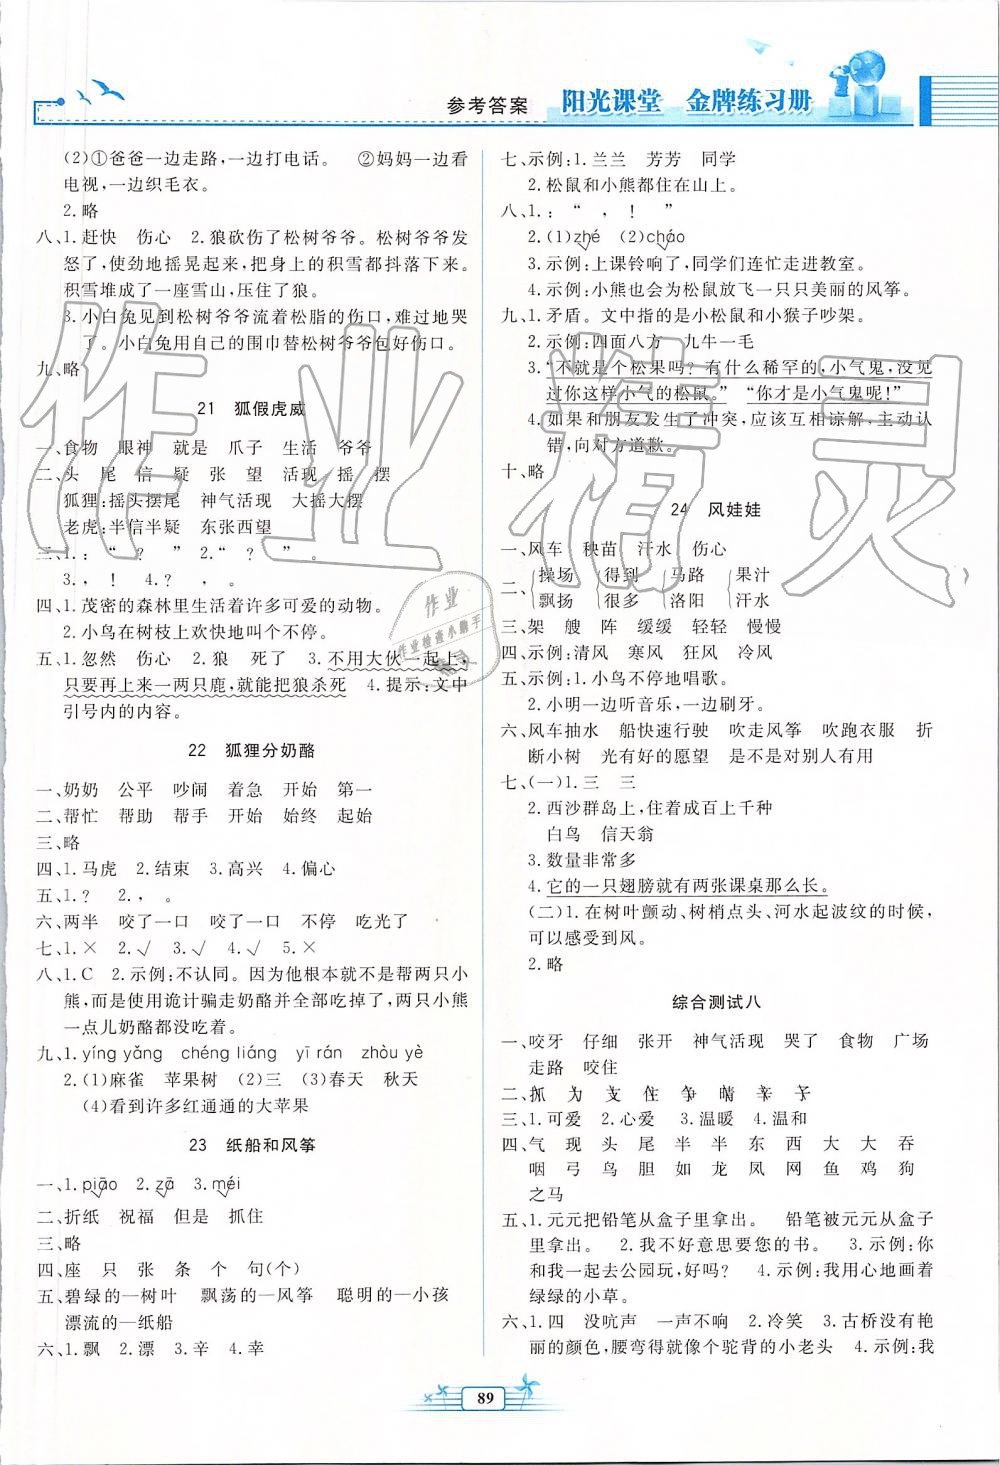 参考答案
阳光课堂 金牌练习册
(2)①爸爸一边走路,一边打电话。 ②妈妈一边看
电视,一边织毛衣。
2.略
八、1.赶快 伤心 2.狼砍伤了松树爷爷。松树爷爷发
怒了,使劲地摇晃起来,把身上的积雪都抖落下来。
积雪堆成了一座雪山,压住了狼。
3.小白兔见到松树爷爷流着松脂的伤口,难过地哭
了。小白兔用自己的围巾替松树爷爷包好伤口。
九、略
21 狐假虎威
一、食物 眼神 就是 爪子 生活 爷爷
二、头 尾 信 疑 张 望 活现 摇 摆
狐狸:摇头摆尾 神气活现 大摇大摆
老虎:半信半疑 东张西望
三、1.:“ ? ” 2.“ ? ” 。
3., ! 4.? , 。
四、1.茂密的森林里生活着许多可爱的动物。
2.小鸟在树枝上欢快地叫个不停。
五、1.忽然 伤心 2.狼 死了 3.不用大伙一起上,
只要再上来一两只鹿,就能把狼杀死 4.提示:文中
引号内的内容。
22 狐狸分奶酪
一、奶奶 公平 吵闹 着急 开始 第一
二、帮忙 帮助 帮手 开始 始终 起始
三、略
四、1.马虎 2.结束 3.高兴 4.偏心
五、1.? 2., 。
六、两半 咬了一口 咬了一口 不停 吃光了
七、1.× 2.√ 3.√ 4.√ 5.×
八、1.C 2.示例:不认同。因为他根本就不是帮两只小
熊,而是使用诡计骗走奶酪并全部吃掉了,两只小熊
一点儿奶酪都没吃着。
九、1.yíng yǎng chéng liáng yī rán zhòu yè
2.(1)麻雀 苹果树 (2)三 (3)春天 秋天
(4)看到许多红通通的大苹果
23 纸船和风筝
一、1.piāo 2.zā 3.méi
二、折纸 祝福 但是 抓住
三、略
四、座 只 张 条 个 句(个)
五、碧绿的—树叶 飘荡的—风筝 聪明的—小孩
漂流的—纸船
六、1.飘 2.漂 3.辛 4.幸
七、示例:1.兰兰 芳芳 同学
2.松鼠和小熊都住在山上。
八、1.:“ , ! ”
2.(1)zhé (2)chǎo
3.示例:上课铃响了,同学们连忙走进教室。
4.示例:小熊也会为松鼠放飞一只只美丽的风筝。
九、1.矛盾。文中指的是小松鼠和小猴子吵架。
2.示例:四面八方 九牛一毛
3.“不就是个松果吗?有什么稀罕的,小气鬼,没见
过你这样小气的松鼠。” “你才是小气鬼呢!”
4.如果和朋友发生了冲突,应该互相谅解,主动认
错,向对方道歉。
十、略
24 风娃娃
一、风车 秧苗 汗水 伤心
二、操场 得到 马路 果汁
飘扬 很多 洛阳 汗水
三、架 艘 阵 缓缓 轻轻 慢慢
四、示例:清风 寒风 狂风 冷风
五、示例:1.小鸟不停地唱歌。
2.小明一边听音乐,一边刷牙。
六、风车抽水 船快速行驶 吹走风筝 吹跑衣服 折
断小树 光有好的愿望 是不是对别人有用
七、(一)1.三 三
2.西沙群岛上,住着成百上千种
白鸟 信天翁
3.数量非常多
4.它的一只翅膀就有两张课桌那么长。
(二)1.在树叶颤动、树梢点头、河水起波纹的时候,
可以感受到风。
2.略
综合测试八
一、咬牙 仔细 张开 神气活现 哭了 食物 广场
走路 咬住
二、抓 为 支 住 争 晴 辛 子
三、1.可爱 2.心爱 3.温暖 4.温和
四、气 现 头 尾 半 半 东 西 大 大 吞
咽 弓 鸟 胆 如 龙 凤 网 鱼 鸡 狗
之马
五、1.元元把铅笔从盒子里拿出。 铅笔被元元从盒子
里拿出。 2.我不好意思要您的书。 3.示例:你
和我一起去公园玩,好吗? 4.示例:我用心地画着
绿绿的小草。
六、1.四 没吭声 一声不响 2.冷笑 3.古桥有艳
丽的颜色,腰弯得就像个驼背的小老头 4.示例:我
89
作业精灵
作业
作业检查小助手